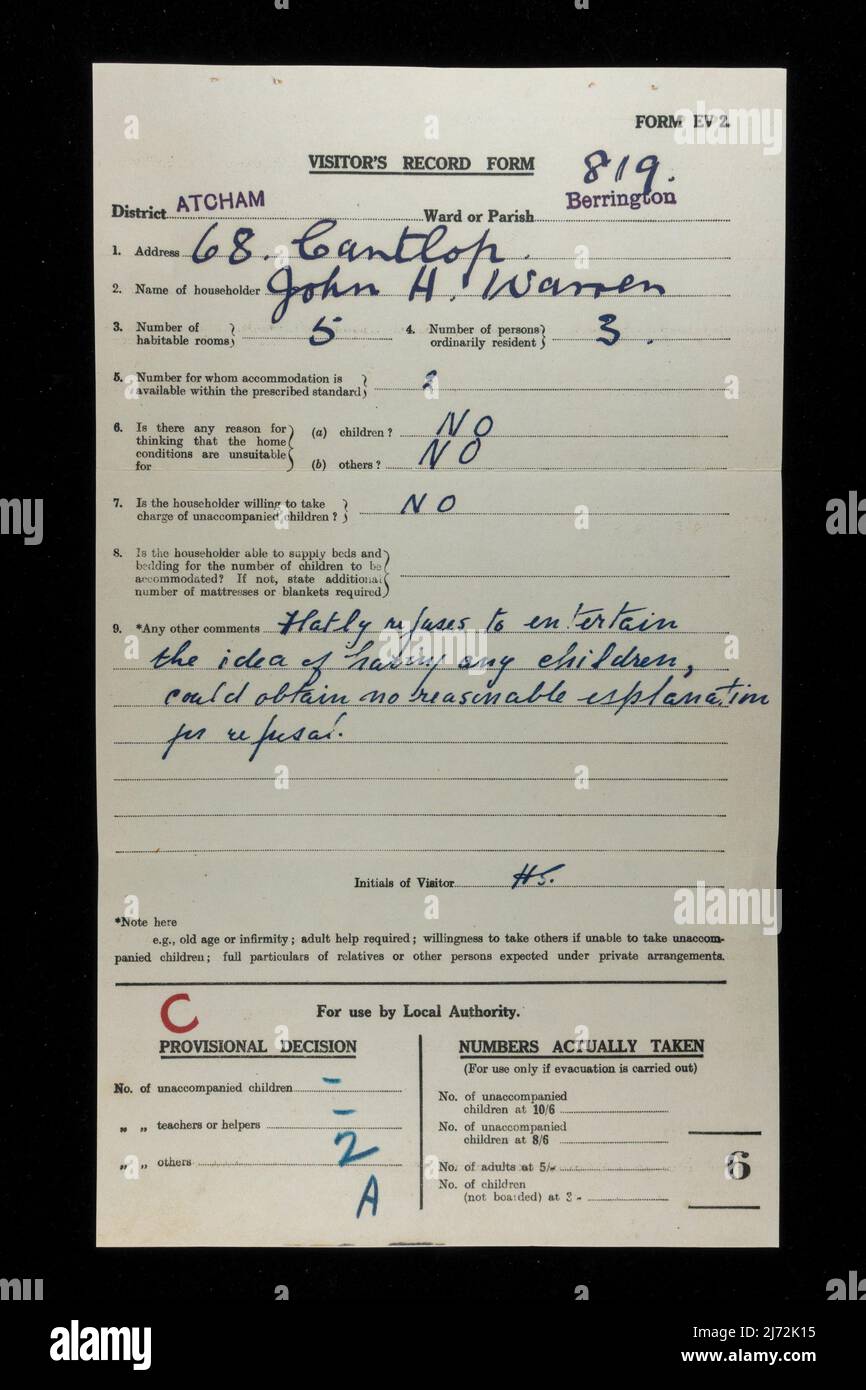 FORM EV 2.
VISITOR'S RECORD FORM
819.
District ATCHAM Ward or Parish Berrington
1. Address 68. Cantlop.
2. Name of householder John H. Warren
3. Number of habitable rooms 5 4. Number of persons ordinarily resident 3.
5. Number for whom accommodation is
available within the prescribed standard 2
6. Is there any reason for
thinking that the home
conditions are unsuitable
for
(a) children? NO
(b) others? NO
7. Is the householder willing to take
charge of unaccompanied children? NO
8. Is the householder able to supply beds and
bedding for the number of children to be
accommodated? If not, state additional
number of mattresses or blankets required
9. *Any other comments Flatly refuses to entertain
the idea of having any children,
could obtain no reasonable explanation
for refusal.
Initials of Visitor HS.
*Note here
e.g., old age or infirmity; adult help required; willingness to take others if unable to take unaccom-
panied children; full particulars of relatives or other persons expected under private arrangements.
C
For use by Local Authority.
PROVISIONAL DECISION
No. of unaccompanied children -
„ „ teachers or helpers -
„ „ others 2
A
NUMBERS ACTUALLY TAKEN
(For use only if evacuation is carried out)
No. of unaccompanied
children at 10/6
No. of unaccompanied
children at 8/6
No. of adults at 5/-
No. of children
(not boarded) at 3-
6
alamy
a
alamy
Image ID: 2J72K15
www.alamy.com